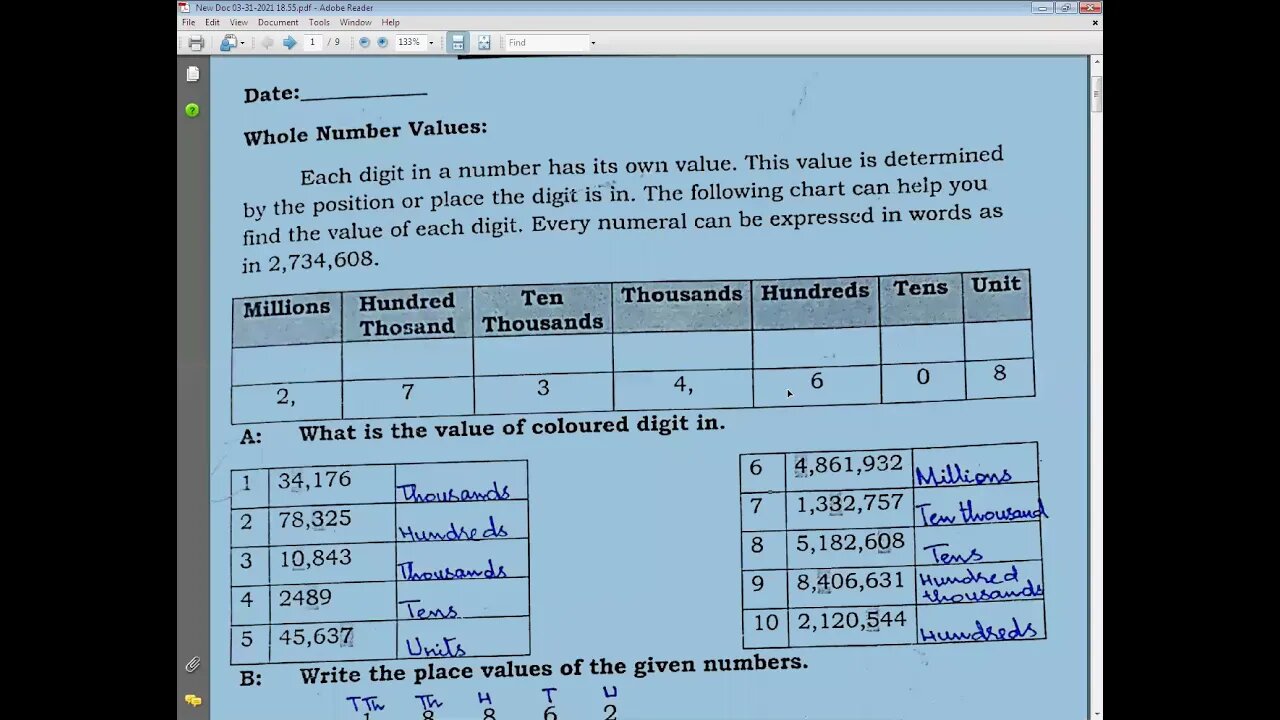 New Doc 03-31-2021 18.55.pdf - Adobe Reader
File Edit View Document Tools Window Help
1 / 9 133% Find
Date:___________
Whole Number Values:
Each digit in a number has its own value. This value is determined
by the position or place the digit is in. The following chart can help you
find the value of each digit. Every numeral can be expressed in words as
in 2,734,608.
Millions Hundred Thosand Ten Thousands Thousands Hundreds Tens Unit
2, 7 3 4, 6 0 8
A: What is the value of coloured digit in.
1 34,176 Thousands
2 78,325 Hundreds
3 10,843 Thousands
4 2489 Tens
5 45,637 Units
6 4,861,932 Millions
7 1,332,757 Ten thousand
8 5,182,608 Tens
9 8,406,631 Hundred thousands
10 2,120,544 Hundreds
B: Write the place values of the given numbers.
T Th Th H T U
1 8 8 6 2